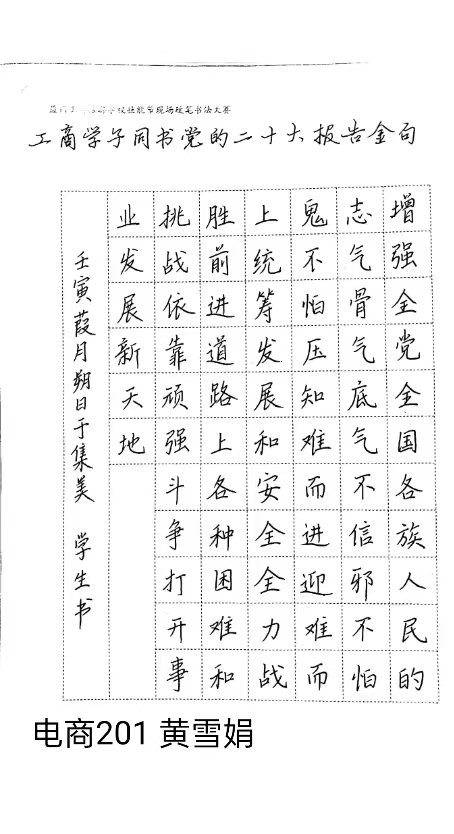 学校技能节现场硬笔书法大赛
工商学子同书党的二十大报告金句
增强全党全国各族人民的
志气骨气底气不信邪不怕
鬼不怕压知难而进迎难而
上统筹发展和安全全力战
胜前进道路上各种困难和
挑战依靠顽强斗争打开事
业发展新天地
壬寅葭月朔日于集美 学生书
电商201 黄雪娟